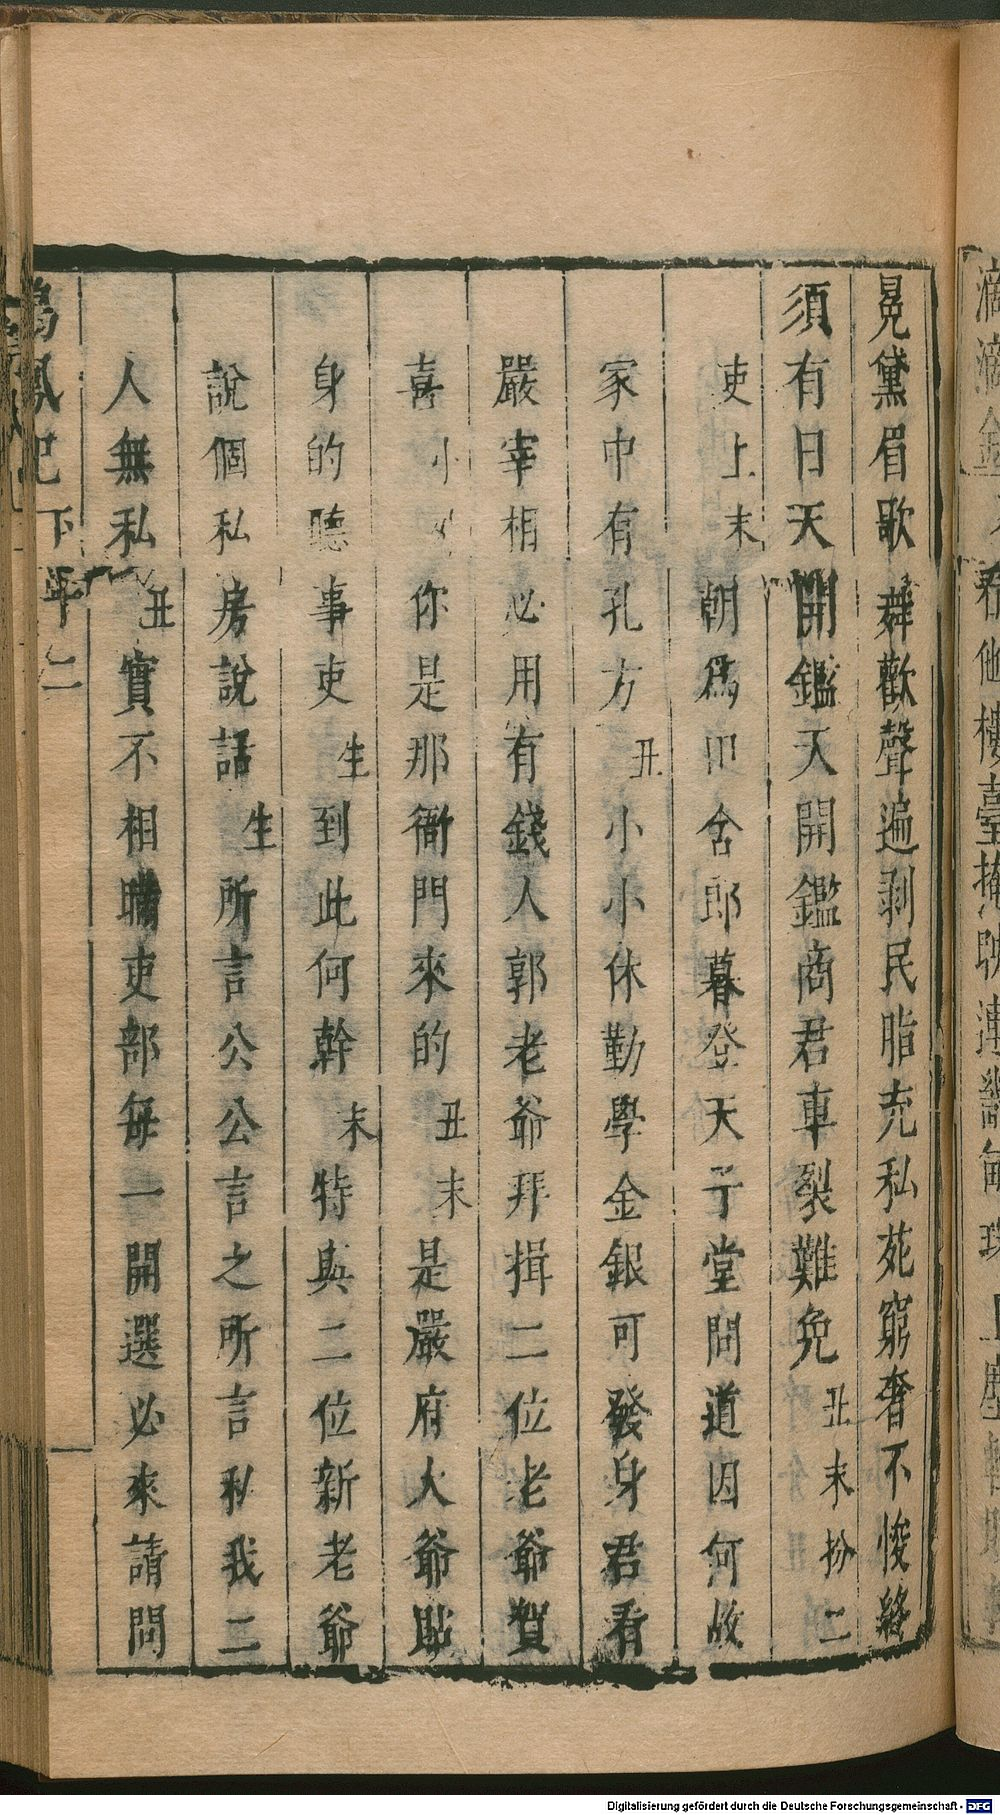 晃黛眉歌舞歡聲遍剥民脂充私苑窮奢不悛終
須有日天開鑑天開鑑商君車裂難免丑末扮二
吏上末朝爲田舍郎暮登天子堂問道因何故
家中有孔方丑小小休勤學金銀可發身君看
嚴宰相必用有錢人郭老爺拜揖二位老爺賀
喜小你是那衙門來的丑末是嚴府大爺貼
身的聽事吏生到此何幹末特與二位新老爺
說個私房說話生所言公公言之所言私我二
人無私丑實不相瞞吏部每一開選必來請問
鳴鳳記 下 二
Digitalisierung gefördert durch die Deutsche Forschungsgemeinschaft - DFG